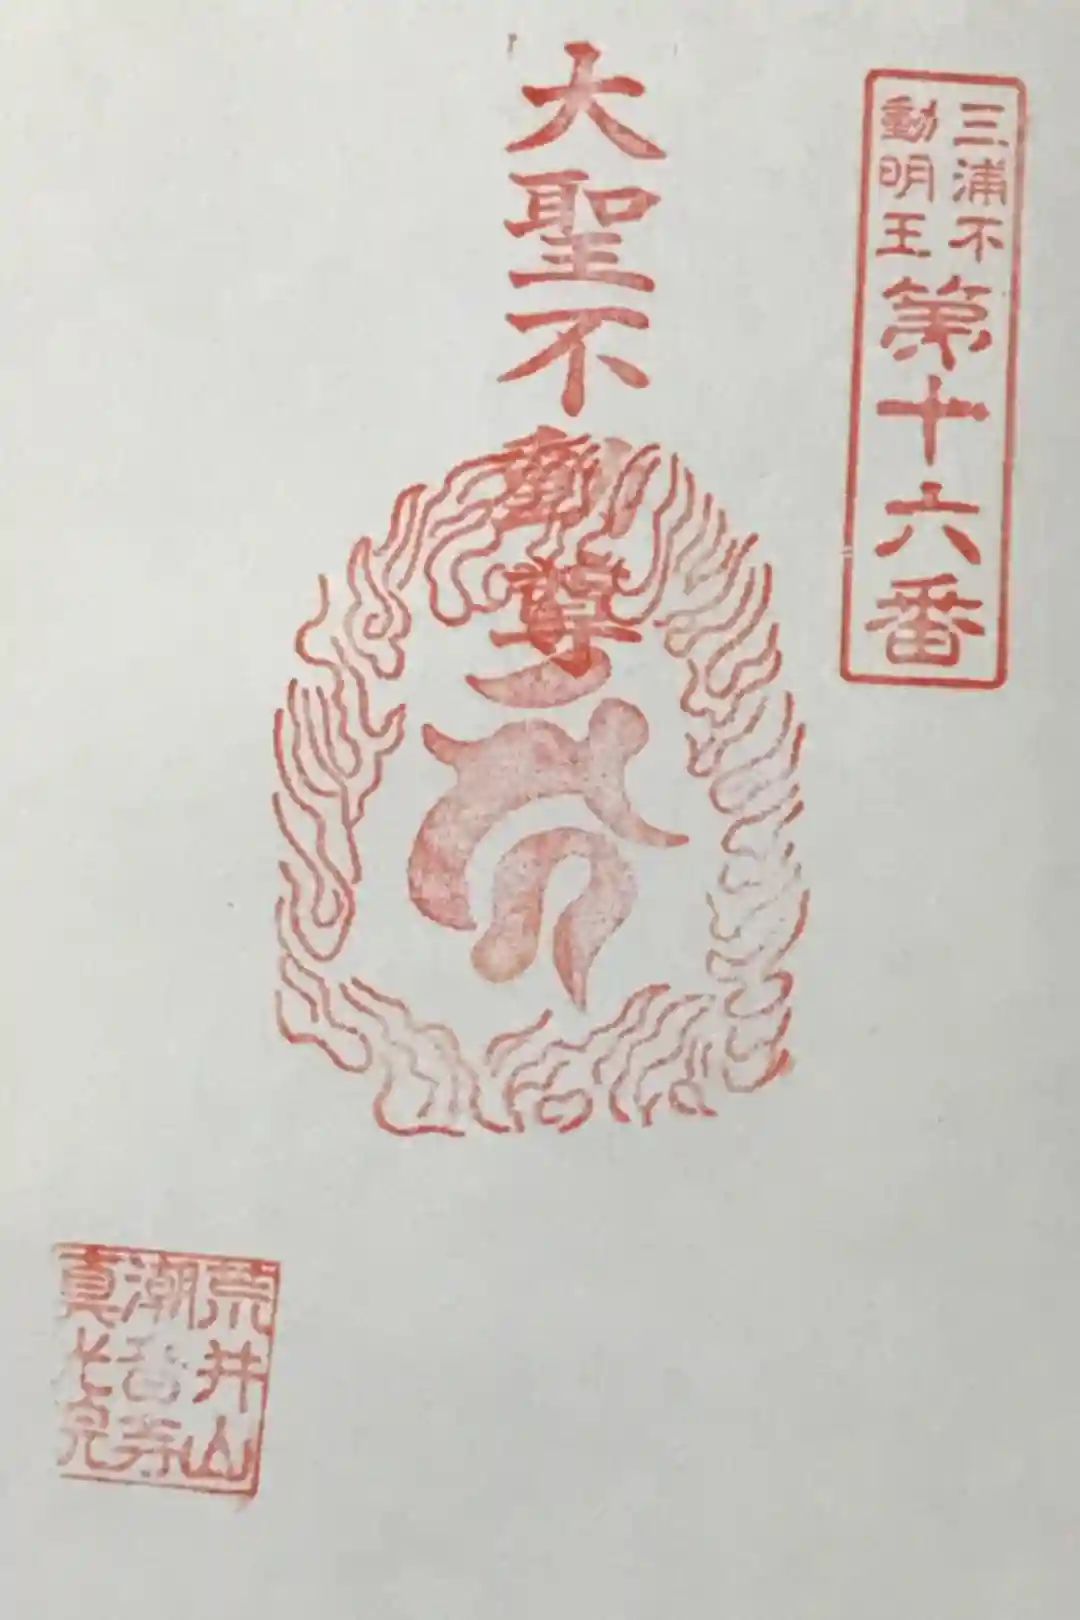 三浦不
動明王
第十六番
大聖不動尊
荒井山
潮音寺
真光院